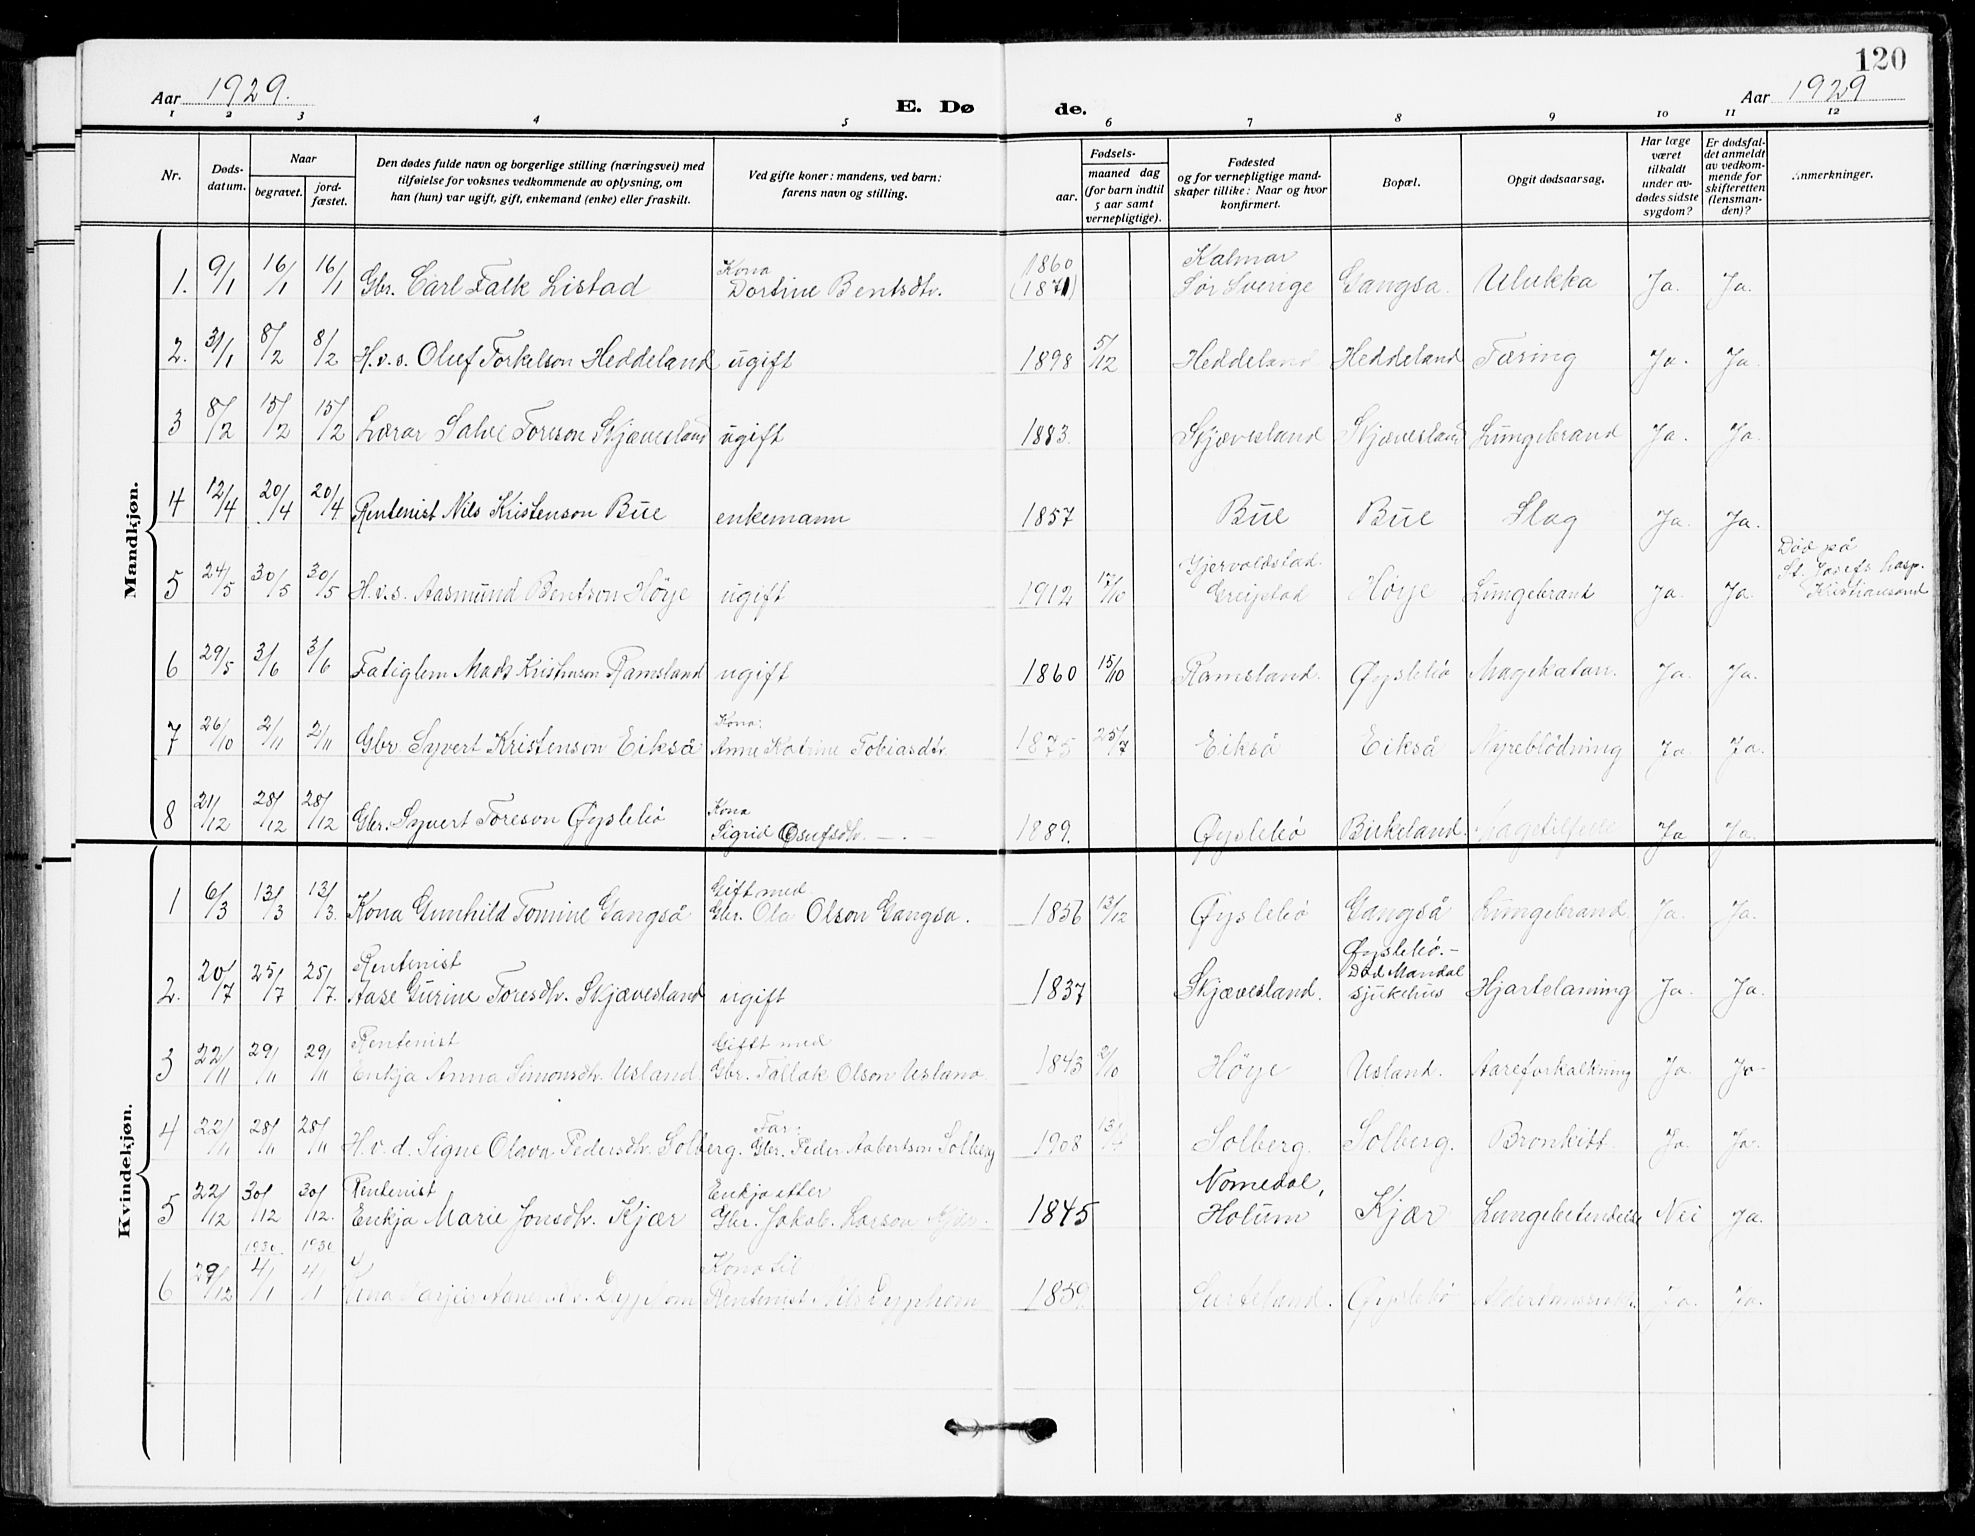 120
Aar 1929.
E. Dø
de.
Aar 1929
1 2 3 4 5 6 7 8 9 10 11 12
Nr.
Døds-
datum.
Naar
begravet.
jord-
fæstet.
Den dødes fulde navn og borgerlige stilling (næringsvei) med
tilføielse for voksnes vedkommende av oplysning, om
han (hun) var ugift, gift, enkemand (enke) eller fraskilt.
Ved gifte koner: mandens, ved barn:
farens navn og stilling.
Fødsels-
aar.
maaned dag
(for barn indtil
5 aar samt
vernepligtige).
Fødested
og for vernepligtige mand-
skaper tillike: Naar og hvor
konfirmert.
Bopæl.
Opgit dødsaarsag.
Har læge
været
tilkaldt
under av-
dødes sidste
sygdom?
Er dødsfal-
det anmeldt
av vedkom-
mende for
skifteretten
(lensman-
den)?
Anmerkninger.
Mandkjøn.
Kona 1860 Kalmar
1. 9/1 16/1 16/1 Gbr. Carl Falk Listad Dortine Bentsdtr. (1871) Sør Sverige Gangsa. Ulukka Ja. Ja.
2. 31/1 8/2 8/2 H.v.s. Oluf Torkelson Heddeland ugift 1898 5/12 Heddeland Heddeland Tæring Ja. Ja.
3 8/2 15/2 15/2 Lærar Salve Toreson Skjævesland ugift 1883. Skjævesland Skjævesland Lungebrand Ja. Ja.
4 12/4 20/4 20/4 Rentenist Nils Kristenson Bue enkemann 1857 Bue Bue Slag Ja. Ja.
Gjervoldstad Død på
5 24/5 30/5 30/5 H.v.s. Aasmund Bentson Höije ugift 1912 17/10 Greipstad Höije Lungebrand Ja. Ja. St. Josefs hosp.
Kristiansand
6 29/5 3/6 3/6 Fatiglem Mads Kristenson Ramsland ugift 1860 15/10 Ramsland. Øyslebö Magekatarr. Ja. Ja.
Kona:
7 26/10 2/11 2/11 Gbr. Syvert Kristenson Eikså Anne Katrine Tobiasdtr. 1875 25/7 Eikså Eikså Nyreblödning Ja. Ja.
Kona
8 21/12 28/12 28/12 Gbr. Syvert Toreson Øyslebö Sigrid Olufsdtr. 1889. Øyslebö Birkeland. Ja Ja.
Kvindekjøn.
Gift med
1 6/3 13/3 13/3. Kona Gunhild Tomine Gangså Gbr. Ola Olson Gangsa. 1856 13/12 Øyslebö Gangså Lungebrand Ja. Ja.
Rentenist Øyslebö.-
Død Mandal
2. 20/7 25/7 25/7. Aase Gurine Toresdtr. Skjævesland ugift 1837 Skjævesland. sjukehus Hjartelaming Ja. Ja.
Rentenist Gift med
3 22/11 29/11 29/11 Enkja Anna Simonsdtr. Usland. Gbr. Tallak Olson Usland. 1843 2/10 Höije Usland. Aareforkalkning Ja. Ja
Far:
4 22/11 28/11 28/11 H.v.d. Signe Olava Pedersdtr. Solberg. Gbr. Peder Aabertson Solberg 1908 Solberg. Solberg. Bronkitt Ja. Ja.
Rentenist Enkja etter Nomedal,
5 22/12 30/12 30/12. Enkja Marie Jonsdtr. Kjær Gbr. Jakob Larson Kjær. 1845 Holum Kjær Lungebetendelse Nei Ja.
1930. 1930 Kona til
6 29/12 4/1 4/1 Dyphom Rentenist Nils Dyphom 1859. Øyslebö Ja. Ja.